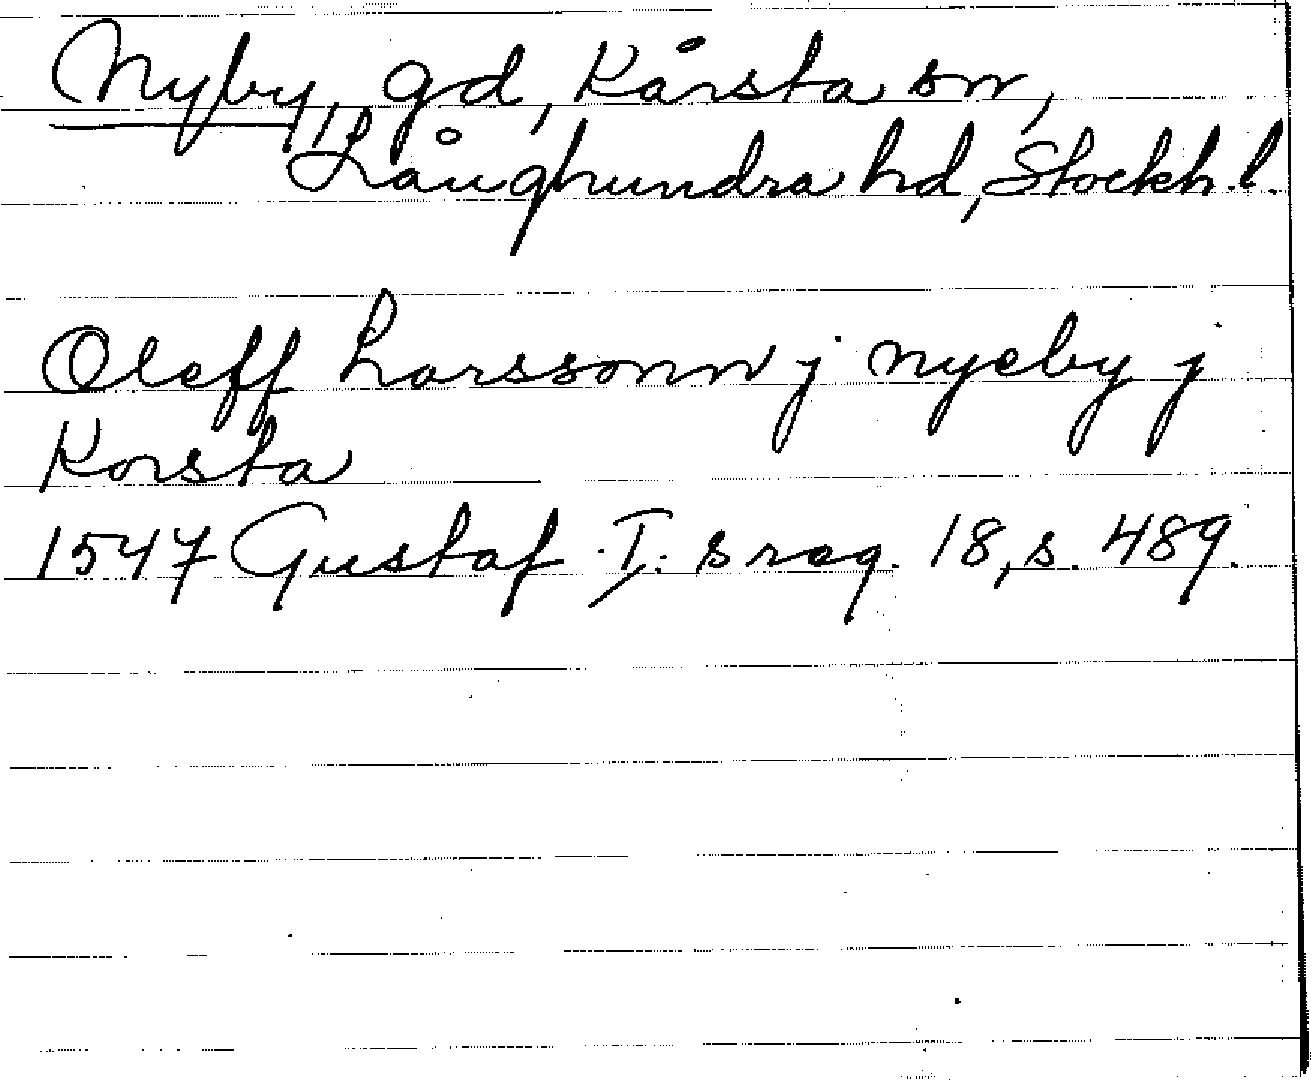 Nyby, gd, Kårsta sn,
Långhundra hd, Stockh. l.
Oleff Larssonn j nyeby j
Korsta
1547 Gustaf I:s reg. 18, s. 489.